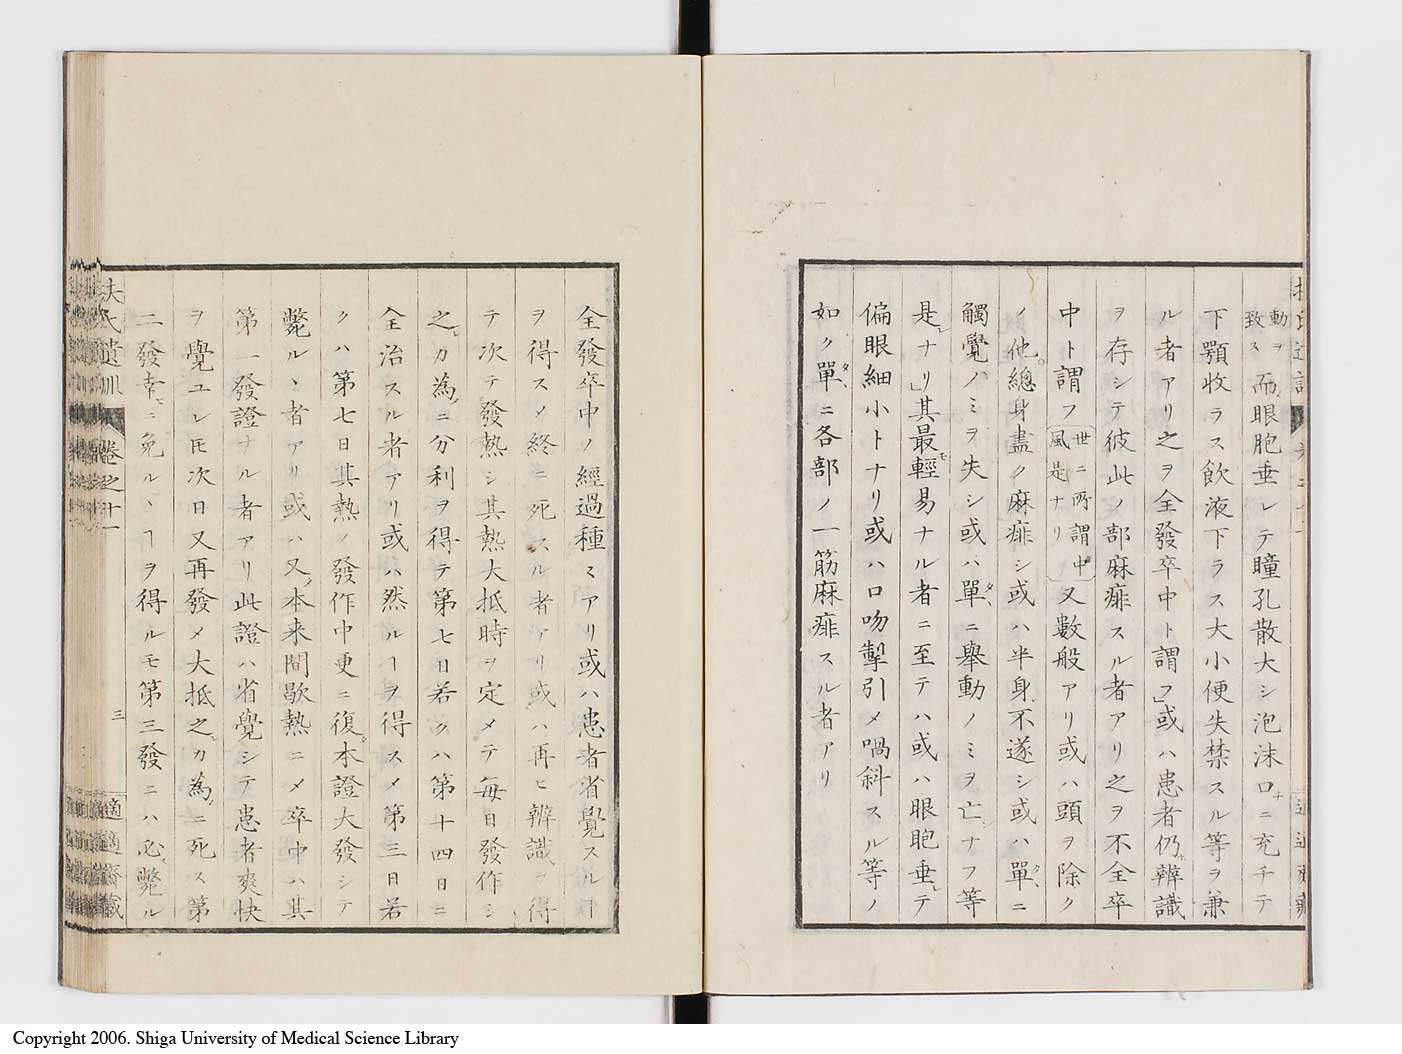 動ヲ致ス而眼胞垂レテ瞳孔散大シ泡沫口ニ充チテ
下顎收ラス飲液下ラス大小便失禁スル等ヲ兼
ル者アリ之ヲ全發卒中ト謂フ」或ハ患者仍辨識
ヲ存シテ彼此ノ部麻痱スル者アリ之ヲ不全卒
中ト謂フ世ニ所謂中風是ナリ又數般アリ或ハ頭ヲ除ク
ノ他總身盡ク麻痱シ或ハ半身不遂シ或ハ單ニ
觸覺ノミヲ失シ或ハ單ニ擧動ノミヲ亡ナフ等
是ナリ」其最輕易ナル者ニ至テハ或ハ眼胞垂テ
偏眼細小トナリ或ハ口吻掣引メ喎斜スル等ノ
如ク單ニ各部ノ一筋麻痱スル者アリ
全發卒中ノ經過種々アリ或ハ患者省覺スルヿ
ヲ得スメ終ニ死スル者アリ或ハ再ヒ辨識ヲ得
テ次テ發熱シ其熱大抵時ヲ定メテ每日發作シ
之カ為ニ分利ヲ得テ第七日若クハ第十四日ニ
全治スル者アリ或ハ然ルヿヲ得スメ第三日若
クハ第七日其熱ノ發作中更ニ復本證大發シテ
斃ルヽ者アリ或ハ又本来間歇熱ニメ卒中ハ其
第一發證ナル者アリ此證ハ省覺シテ患者爽快
ヲ覺ユレ𪜈次日又再發メ大抵之カ為ニ死ス第
二發幸ニ免ルヽヿヲ得ルモ第三發ニハ必斃ル
扶氏遺訓 卷之廿一
三
適適齋藏
Copyright 2006. Shiga University of Medical Science Library